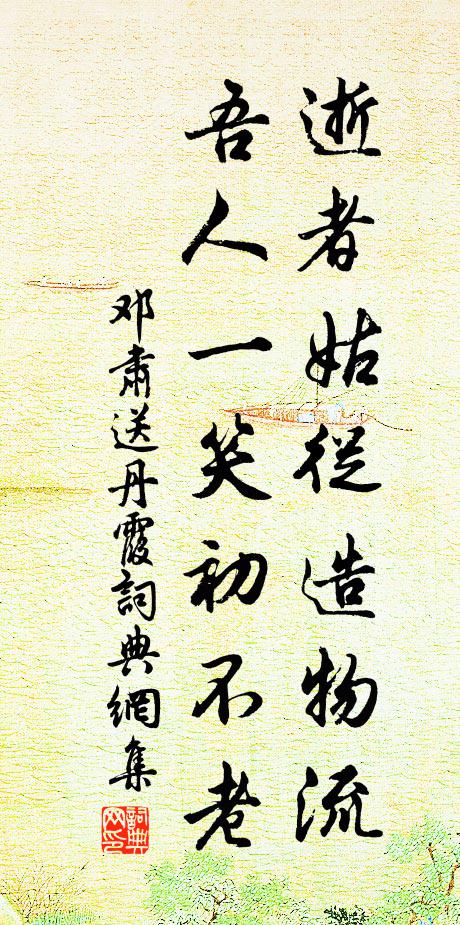 逝者姑從造物流
吾人一笑初不老
邓肅送丹霞詞典網集
詞典網印